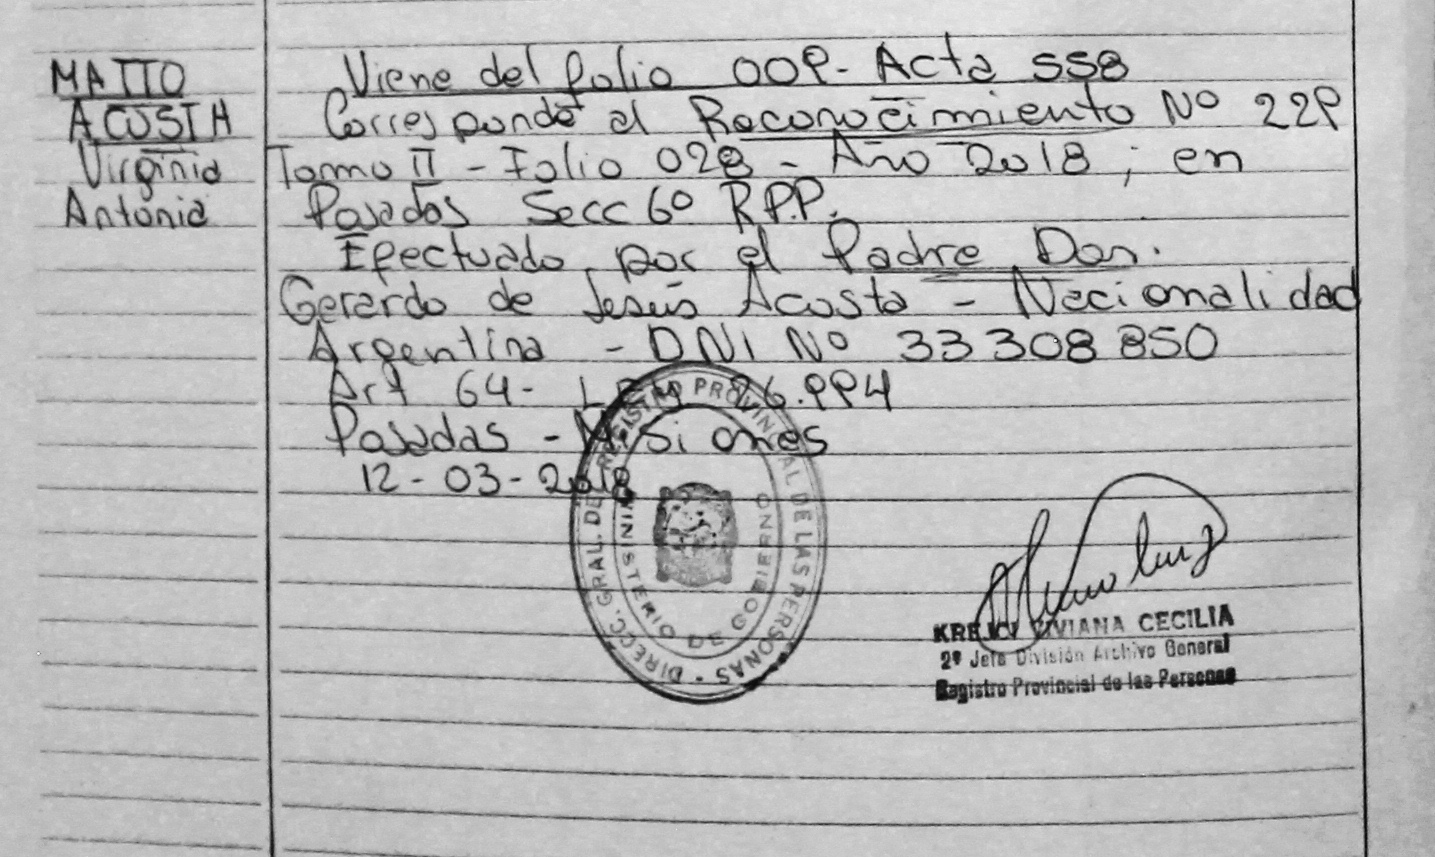 MATTO
ACOSTA
Virginia
Antonia
Viene del folio 009- Acta 558
Corresponde al Reconocimiento Nº 229
Tomo II - Folio 028 - Año 2018 ; en
Posadas Secc 6º R.P.P.
Efectuado, por el Padre Don.
Gerardo de Jesús Acosta - Nacionalidad
Argentina - DNI Nº 33308850
Art 64- Ley 26.994
Posadas - Misiones
12-03-2018
DIRECC. GRAL. DEL REGISTRO PROVINCIAL DE LAS PERSONAS -
MINISTERIO DE GOBIERNO
VIVIANA CECILIA
2º Jefe División Archivo General
Registro Provincial de las Personas